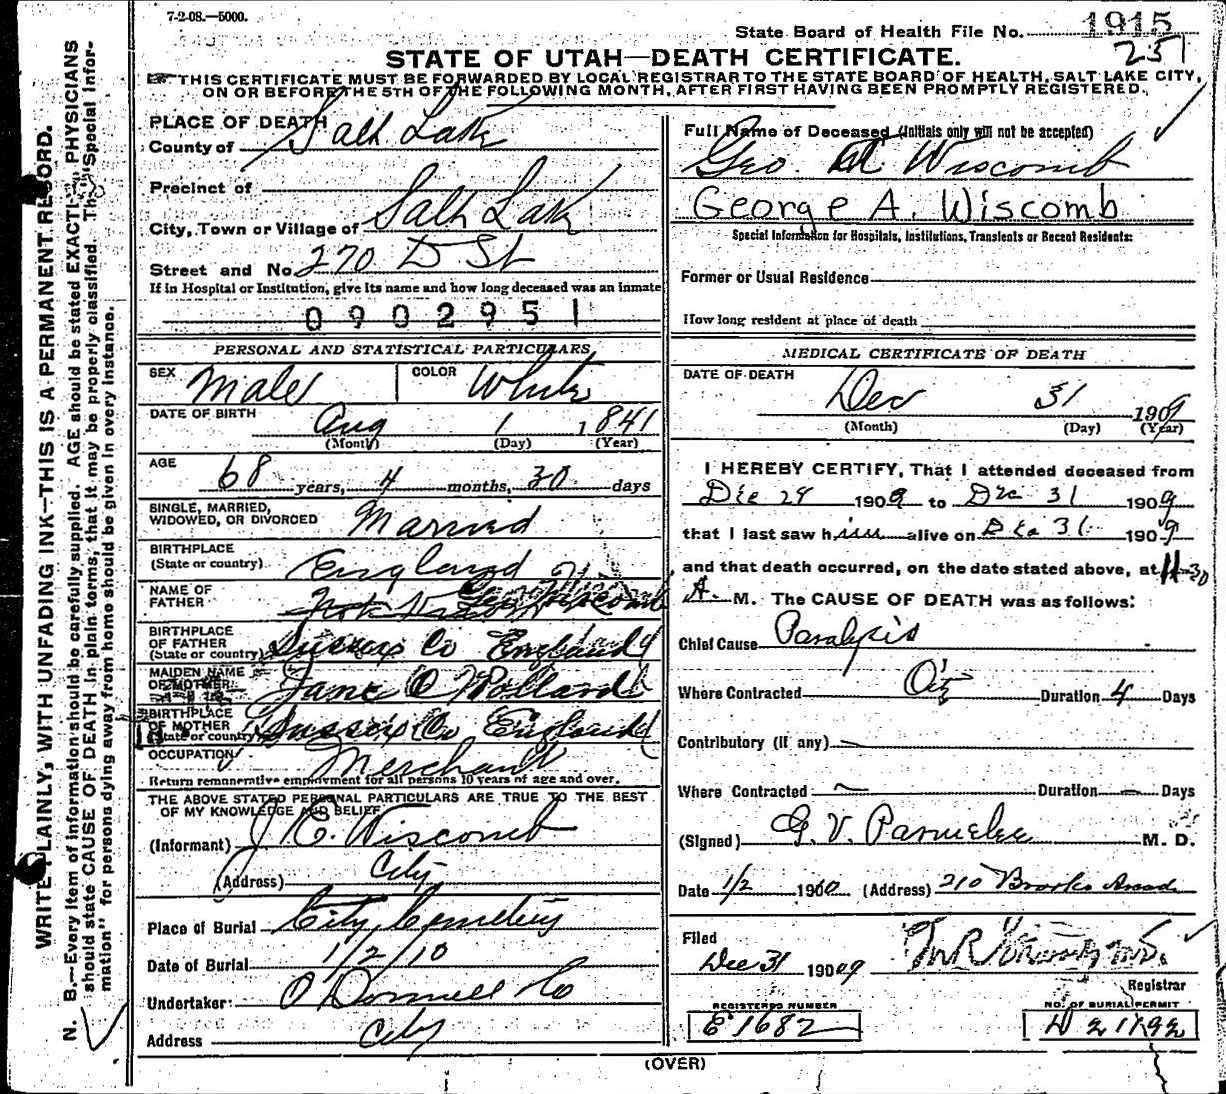 7-2-08.—5000.
State Board of Health File No. 1915
251
STATE OF UTAH—DEATH CERTIFICATE.
THIS CERTIFICATE MUST BE FORWARDED BY LOCAL REGISTRAR TO THE STATE BOARD OF HEALTH, SALT LAKE CITY,
ON OR BEFORE THE 5TH OF THE FOLLOWING MONTH, AFTER FIRST HAVING BEEN PROMPTLY REGISTERED.
WRITE PLAINLY, WITH UNFADING INK—THIS IS A PERMANENT RECORD.
N. B.—Every item of information should be carefully supplied. AGE should be stated EXACTLY. PHYSICIANS
should state CAUSE OF DEATH in plain terms, that it may be properly classified. The "Special Infor-
mation" for persons dying away from home should be given in every instance.
PLACE OF DEATH
County of Salt Lake
Precinct of
City, Town or Village of Salt Lake
Street and No. 270 D St
If in Hospital or Institution, give its name and how long deceased was an inmate
0902951
PERSONAL AND STATISTICAL PARTICULARS
SEX Male COLOR White
DATE OF BIRTH Aug 1 1841
(Month) (Day) (Year)
AGE 68 years, 4 months, 30 days
SINGLE, MARRIED,
WIDOWED, OR DIVORCED Married
BIRTHPLACE
(State or country) England
NAME OF
FATHER Geo Wiscomb
BIRTHPLACE
OF FATHER
(State or country) Sussex Co England
MAIDEN NAME
OF MOTHER Jane O Pollard
BIRTHPLACE
OF MOTHER
(State or country) Sussex Co England
OCCUPATION Merchant
Return remunerative employment for all persons 10 years of age and over.
THE ABOVE STATED PERSONAL PARTICULARS ARE TRUE TO THE BEST
OF MY KNOWLEDGE AND BELIEF
(Informant) J E. Wiscomb
(Address) City
Place of Burial City Cemetery
Date of Burial 1/2/10
Undertaker: O'Donnell Co
Address City
Full Name of Deceased (Initials only will not be accepted)
Geo. Wiscomb
George A. Wiscomb
Special Information for Hospitals, Institutions, Transients or Recent Residents:
Former or Usual Residence
How long resident at place of death
MEDICAL CERTIFICATE OF DEATH
DATE OF DEATH
Dec 31 1909
(Month) (Day) (Year)
I HEREBY CERTIFY, That I attended deceased from
Dec 28 1909 to Dec 31 1909
that I last saw him alive on Dec 31 1909
and that death occurred, on the date stated above, at 11-30
A. M. The CAUSE OF DEATH was as follows:
Chief Cause Paralysis
Where Contracted City Duration 4 Days
Contributory (if any) —
Where Contracted — Duration — Days
(Signed) G. V. Parmelee M. D.
Date 1/2 1910 (Address) 210 Brooks Arcade
Filed
Dec 31 1909
Registrar
REGISTERED NUMBER
E 1682
NO. OF BURIAL PERMIT
(OVER)